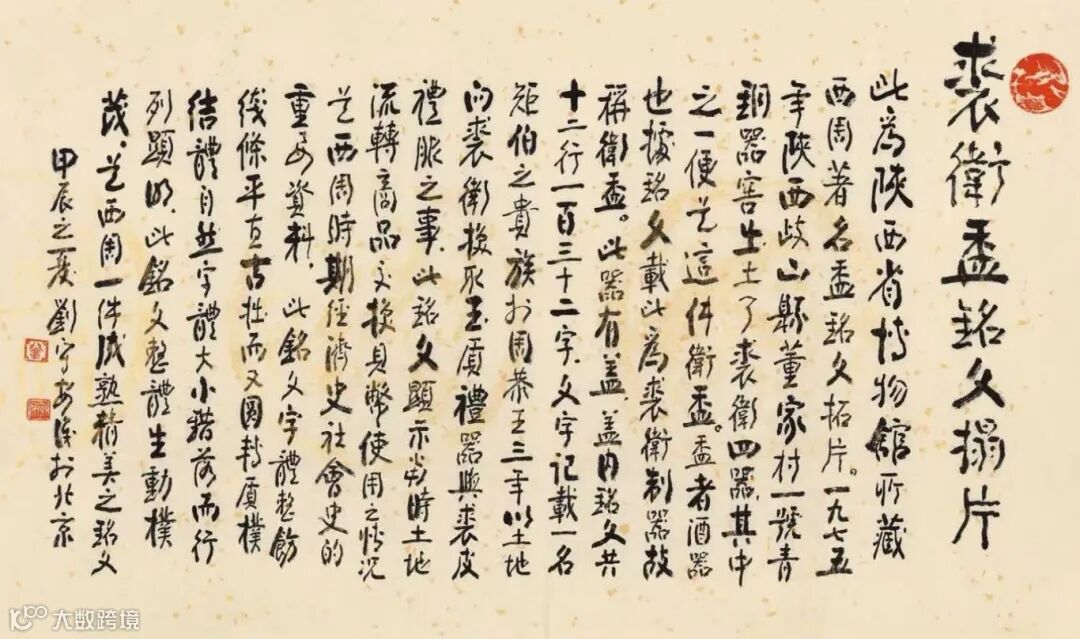 裘衛盉銘文搨片
此為陝西省博物館所藏
西周著名盉銘文拓片。一九七五
年陝西歧山縣董家村一號青
銅器窖出土了裘衛四器,其中
之一便是這件衛盉。盉者酒器
也據銘文載此為裘衛制器故
稱衛盉。此器有盖,盖内銘文共
十二行一百三十二字,文字記載一名
矩伯之貴族於周恭王三年以土地
向裘衛換取玉質禮器與裘皮
禮服之事,此銘文顯示當時土地
流轉商品交換貝幣使用之情况
是西周時期經濟史社會史的
重要資料,此銘文字體整飭
綫條平直古拙而又圆轉質樸
结體自然字體大小錯落而行
列顯明,此銘文整體生動樸
茂,是西周一件成熟精美之銘文
甲辰之夏劉守安識於北京
大数跨境